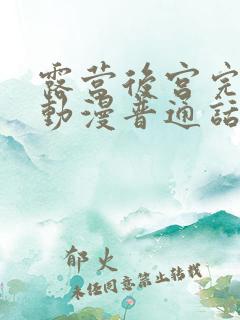 露营後宫完
動漫普通話
郁火
未经同意禁止转载